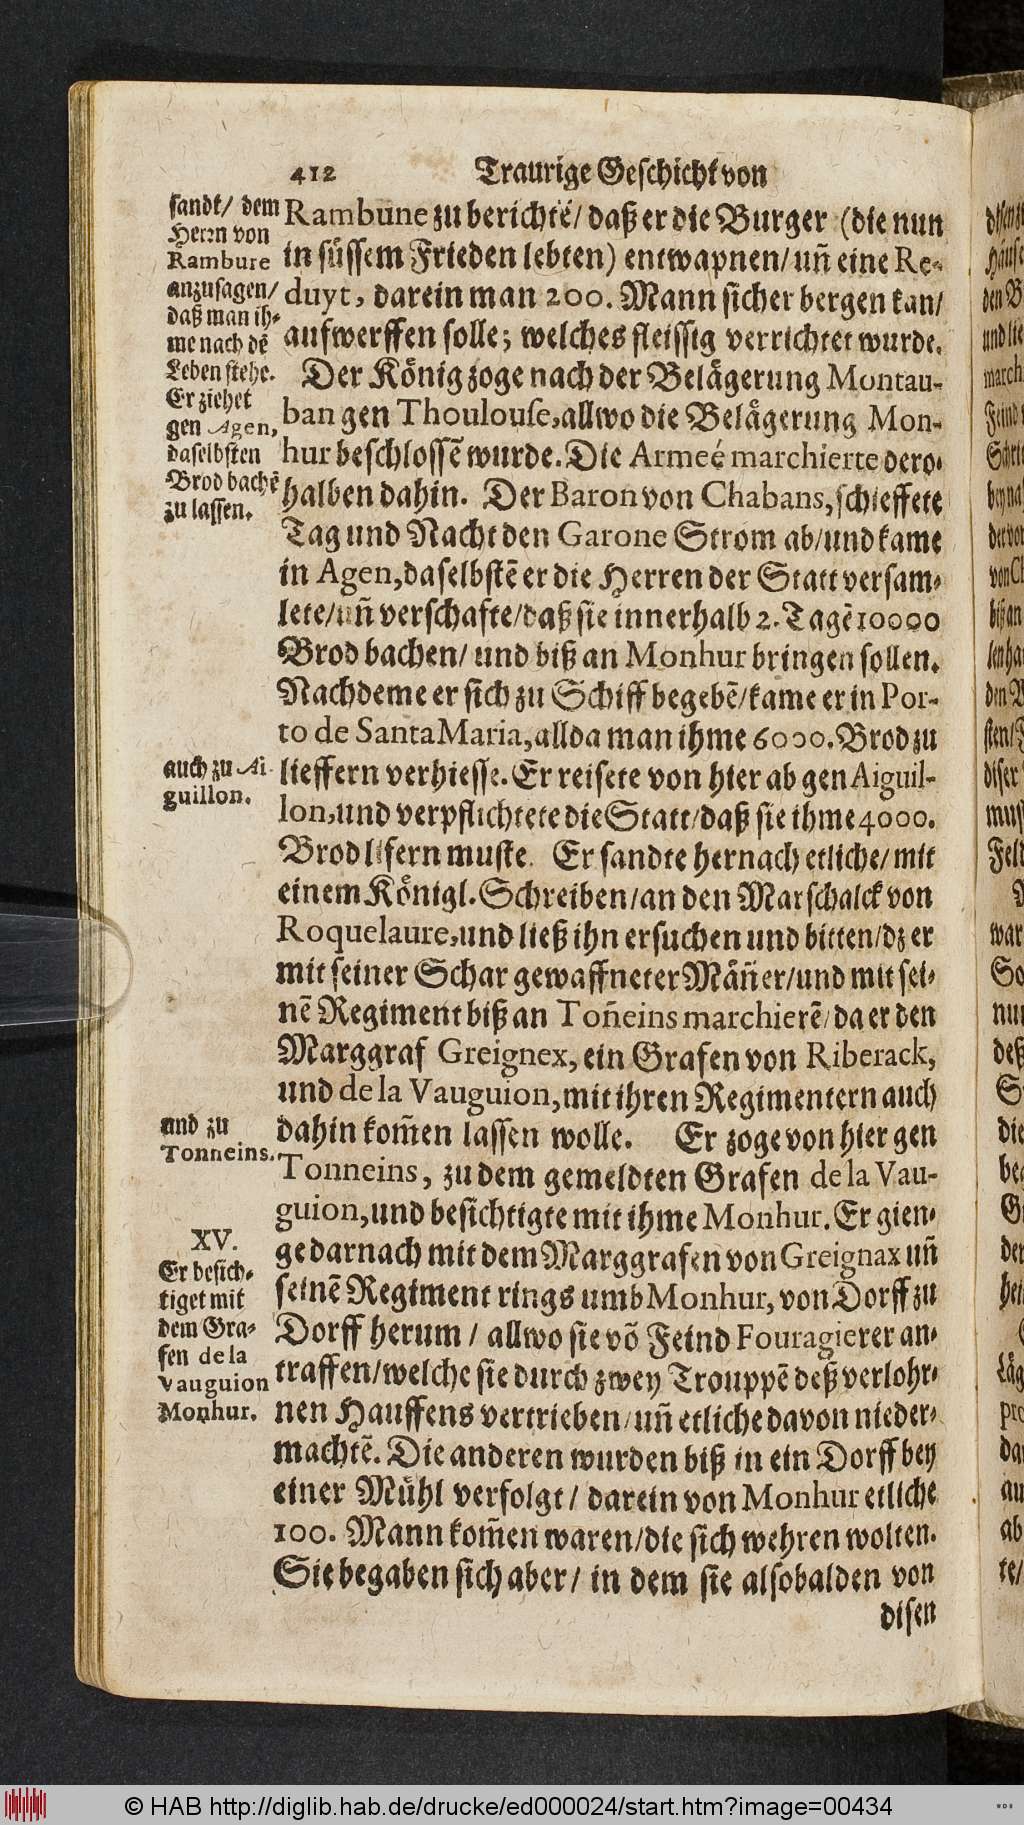 412 Traurige Geschicht von
sandt/ dem
Herrn von
Rambure
anzusagen/
daß man ih⸗
me nach dẽ
Leben stehe.
Er ziehet
gen Agen,
daselbsten
Brod bachẽ
zu lassen.
Rambune zu berichtẽ/ daß er die Burger (die nun
in süssem Frieden lebten) entwapnen/ uñ eine Re⸗
duyt, darein man 200. Mann sicher bergen kan/
aufwerffen solle; welches fleissig verrichtet wurde.
Der König zoge nach der Belägerung Montau-
ban gen Thoulouse, allwo die Belägerung Mon-
hur beschlossẽ wurde. Die Armeé marchierte dero⸗
halben dahin. Der Baron von Chabans, schieffete
Tag und Nacht den Garone Strom ab/ und kame
in Agen, daselbstẽ er die Herren der Statt versam⸗
lete/ uñ verschafte/ daß sie innerhalb 2. Tagẽ 10000
Brod bachen/ und biß an Monhur bringen sollen.
Nachdeme er sich zu Schiff begebẽ/ kame er in Por-
to de Santa Maria, allda man ihme 6000. Brod zu
auch zu Ai
guillon.
lieffern verhiesse. Er reisete von hier ab gen Aiguil-
lon, und verpflichtete die Statt/ daß sie ihme 4000.
Brod lifern muste. Er sandte hernach etliche/ mit
einem Königl. Schreiben/ an den Marschalck von
Roquelaure, und ließ ihn ersuchen und bitten/ dz er
mit seiner Schar gewaffneter Mäñer/ und mit sei⸗
nẽ Regiment biß an Toñeins marchierẽ/ da er den
Marggraf Greignex, ein Grafen von Riberack,
und de la Vauguion, mit ihren Regimentern auch
und zu
Tonneins.
dahin kom̃en lassen wolle. Er zoge von hier gen
Tonneins, zu dem gemeldten Grafen de la Vau-
guion, und besichtigte mit ihme Monhur. Er gien⸗
XV.
Er besich⸗
tiget mit
dem Gra⸗
fen de la
Vauguion
Monhur.
ge darnach mit dem Marggrafen von Greignax uñ
seinẽ Regiment rings umb Monhur, von Dorff zu
Dorff herum/ allwo sie võ Feind Fouragierer an⸗
traffen/ welche sie durch zwey Trouppẽ deß verlohr⸗
nen Hauffens vertrieben/ uñ etliche davon nieder⸗
machtẽ. Die anderen wurden biß in ein Dorff bey
einer Mühl verfolgt/ darein von Monhur etliche
100. Mann kom̃en waren/ die sich wehren wolten.
Sie begaben sich aber/ in dem sie alsobalden von
disen
© HAB http://diglib.hab.de/drucke/ed000024/start.htm?image=00434